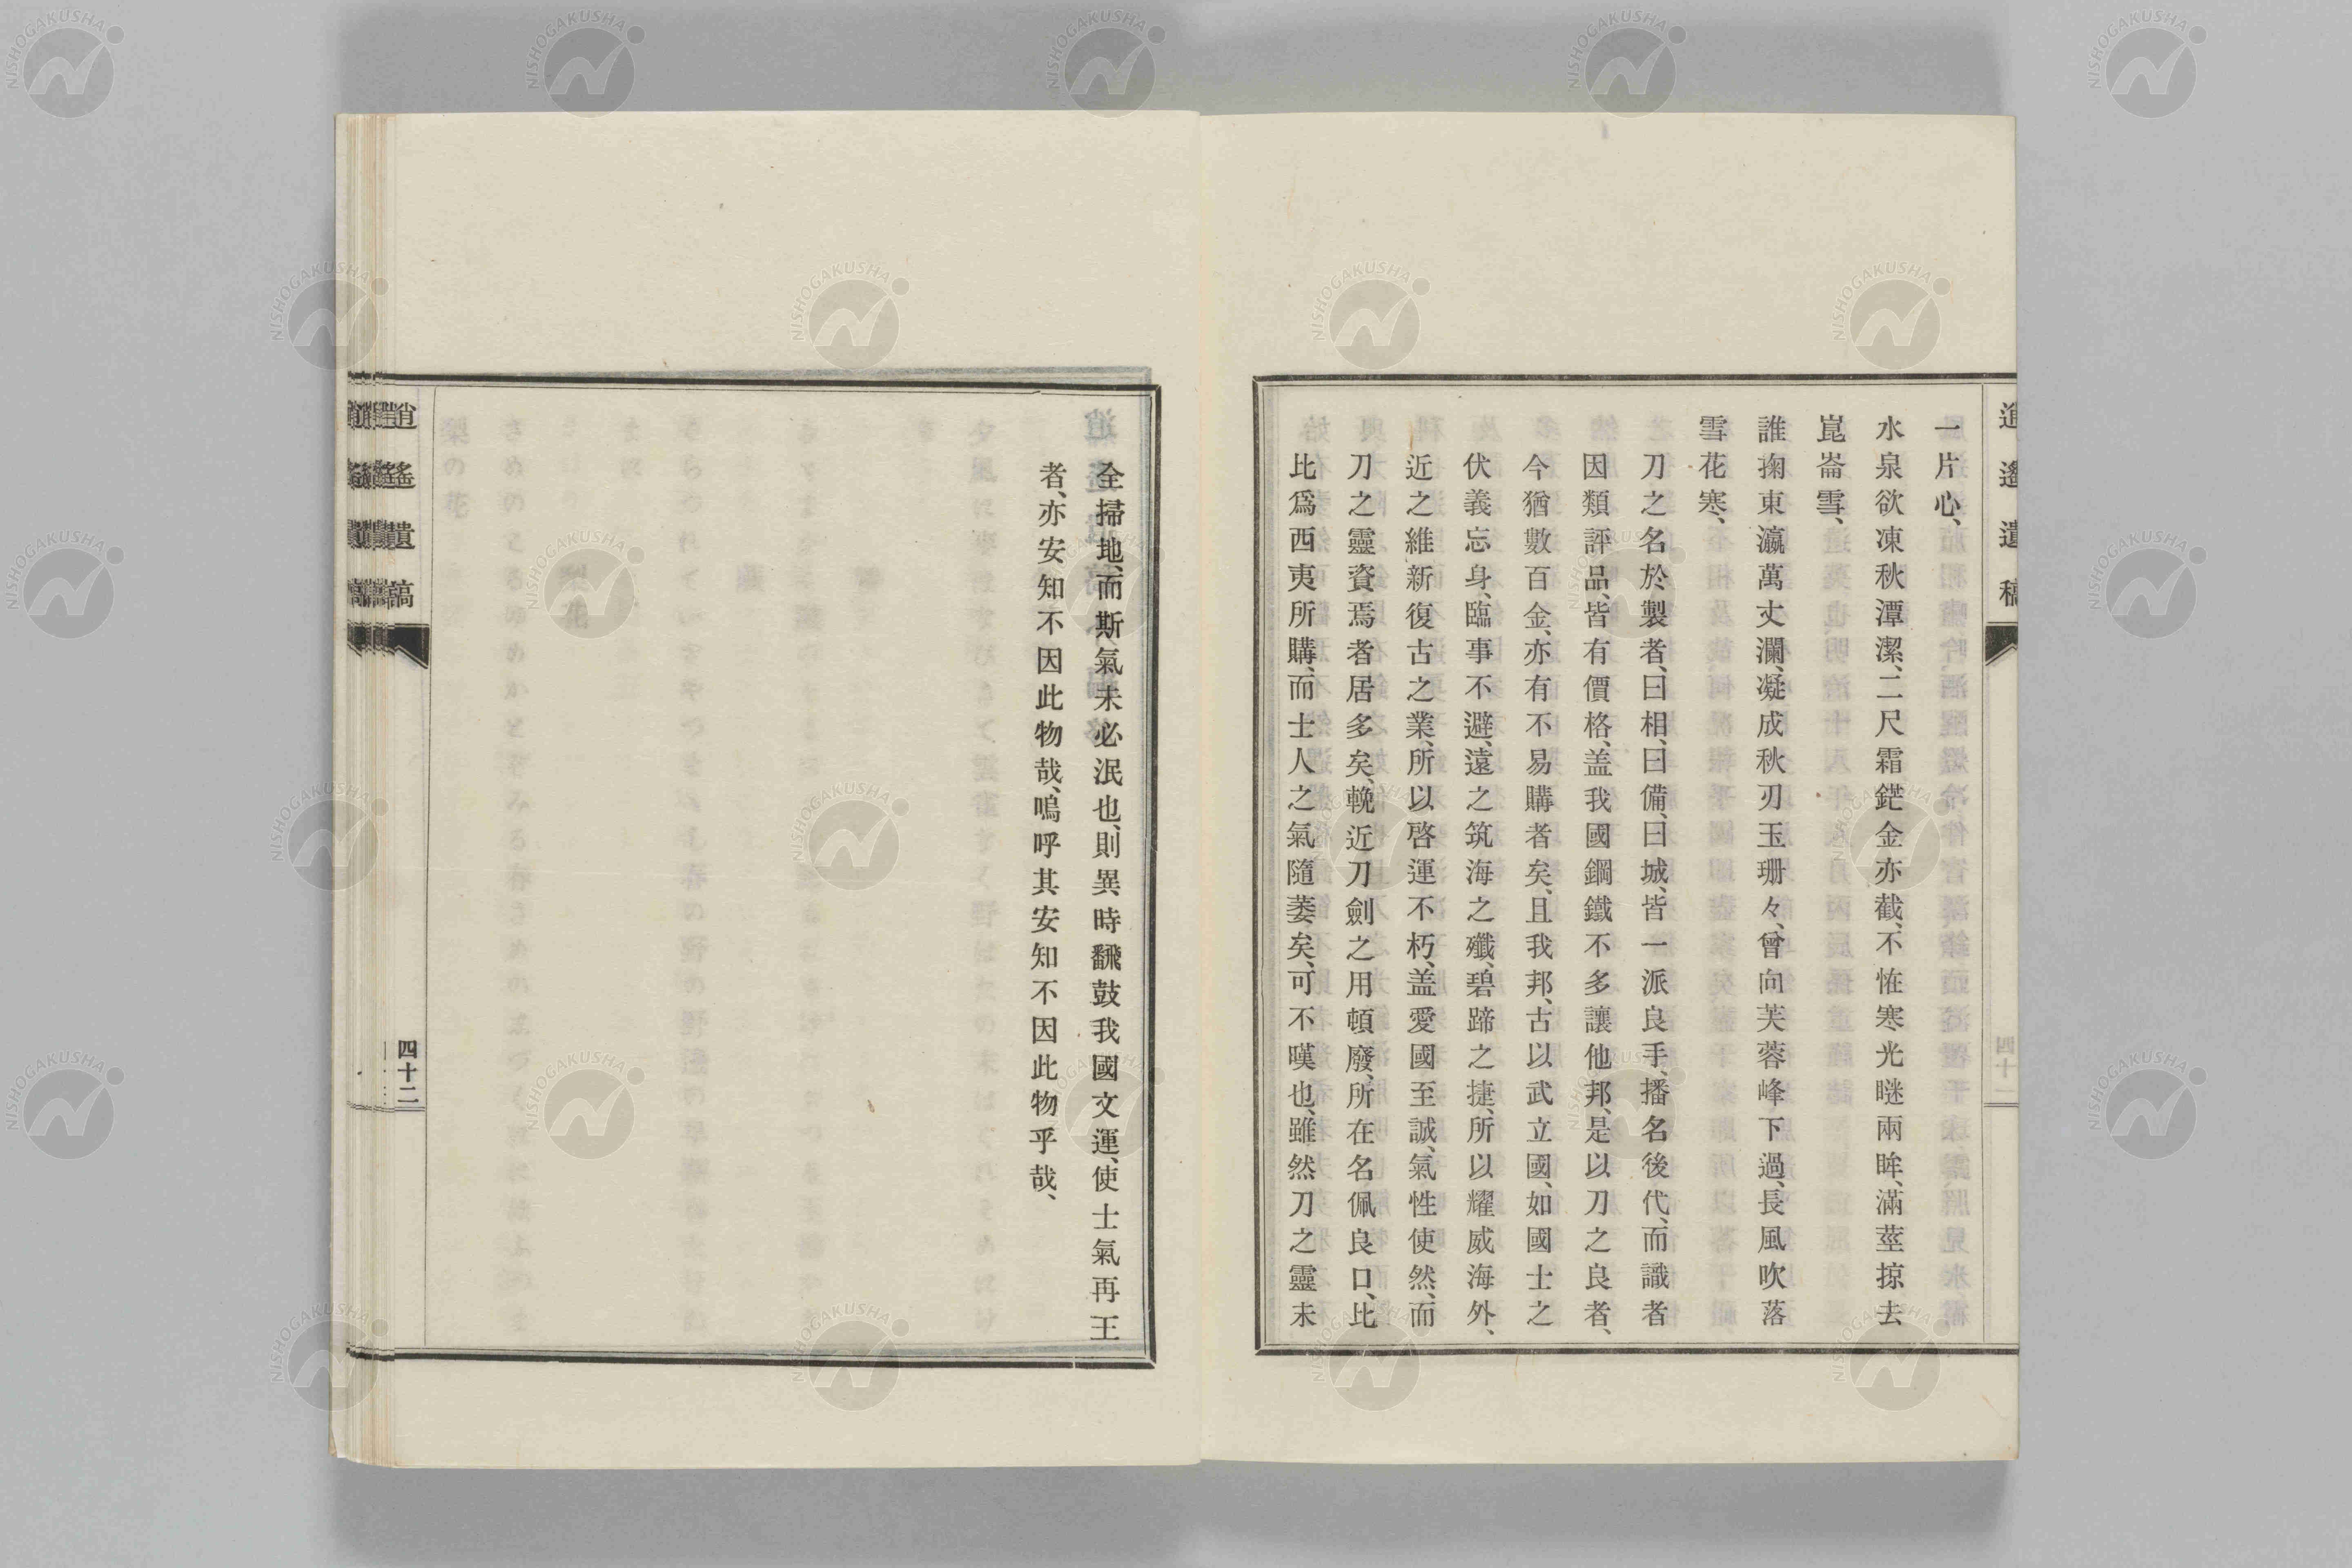 逍遙遺稿
一片心、
水泉欲凍秋潭潔、二尺霜鋩金亦截、不恠寒光瞇兩眸、滿莖掠去
崑崙雪、
誰掬東瀛萬丈瀾、凝成秋刃玉珊々、曾向芙蓉峰下過、長風吹落
雪花寒、
刀之名於製者、曰相、曰備、曰城、皆一派良手、播名後代、而識者
因類評品、皆有價格、盖我國鋼鐵不多讓他邦、是以刀之良者、
今猶數百金、亦有不易購者矣、且我邦、古以武立國、如國士之
伏義忘身、臨事不避、遠之筑海之殲、碧蹄之捷、所以耀威海外、
近之維新復古之業、所以啓運不朽、盖愛國至誠、氣性使然、而
刀之靈資焉者居多矣、輓近刀劍之用頓廢、所在名佩良口、比
比爲西夷所購、而士人之氣隨萎矣、可不嘆也、雖然刀之靈未
全掃地、而斯氣未必泯也、則異時飜鼓我國文運、使士氣再王
者、亦安知不因此物哉、嗚呼其安知不因此物乎哉、
逍遙遺稿
四十二
NISHOGAKUSHA